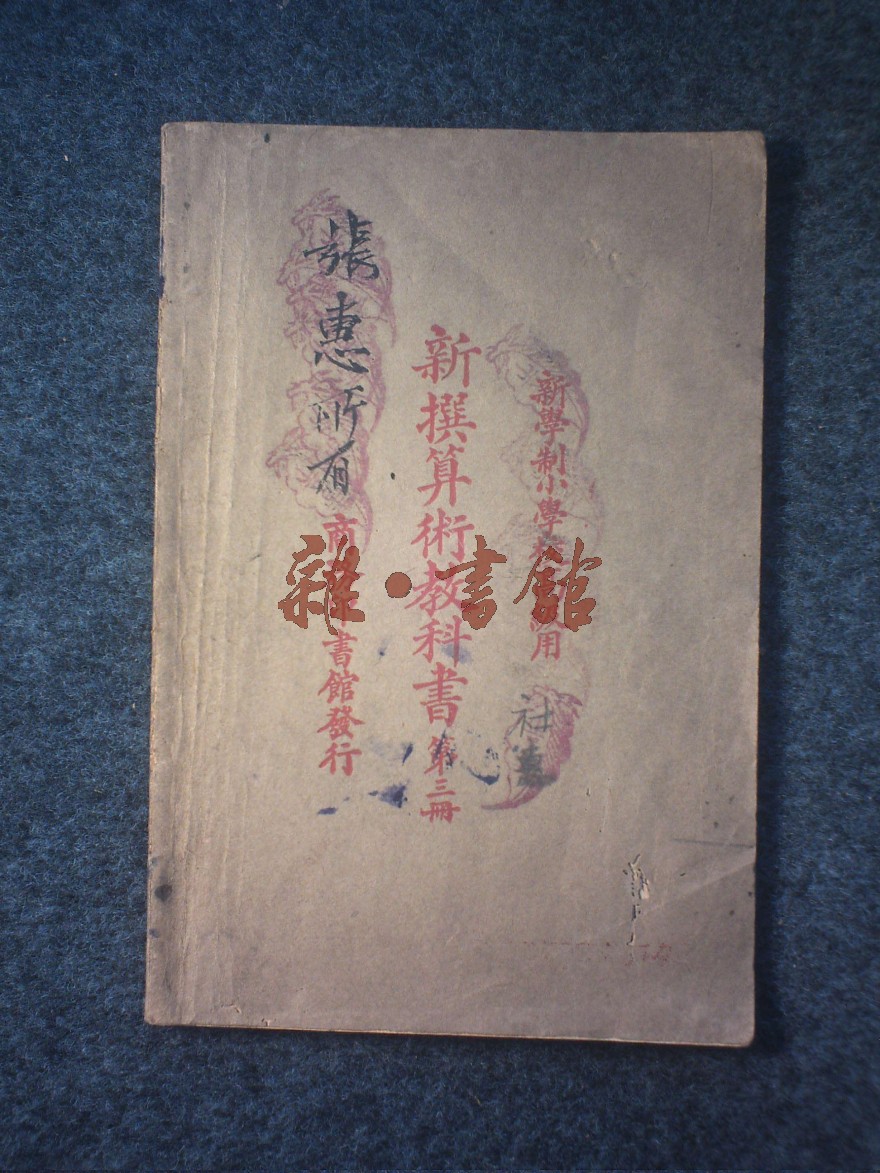 新學制小學校級用
新撰算術教科書 第三冊
張惠所有
商務印書館發行
雜·書館